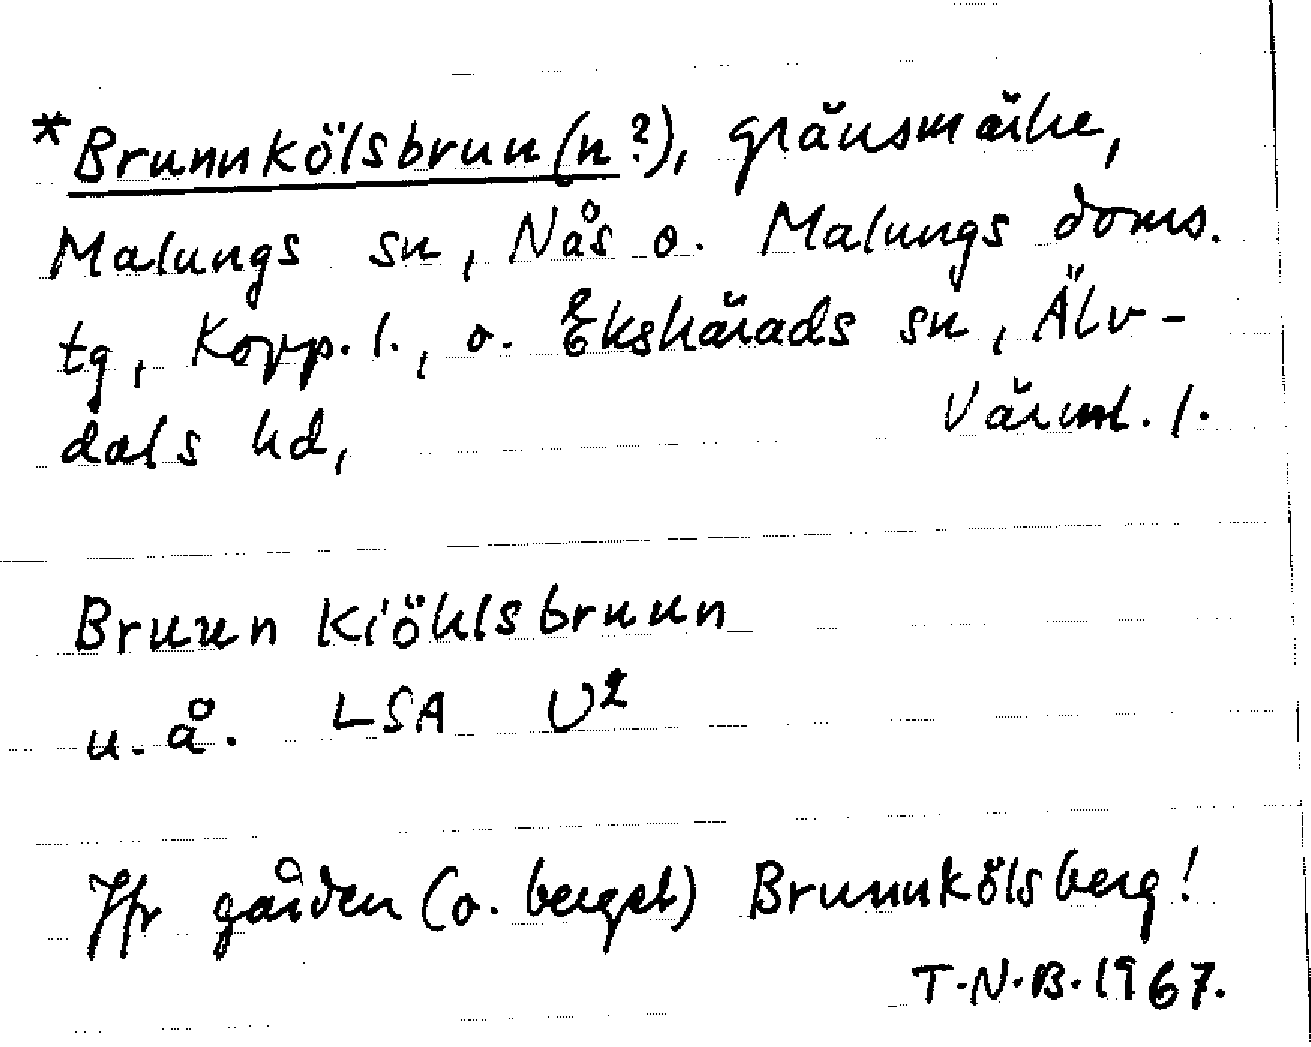 *Brunnkölsbrun(n?), gränsmärke,
Malungs sn, Nås o. Malungs doms.
tg, Kopp. l., o. Ekshärads sn, Älv-
dals hd, Värml. l.
Brunn Kiöhlsbrunn
u. å. LSA U²
Jfr gården (o. berget) Brunnkölsberg!
T.N.B. 1967.